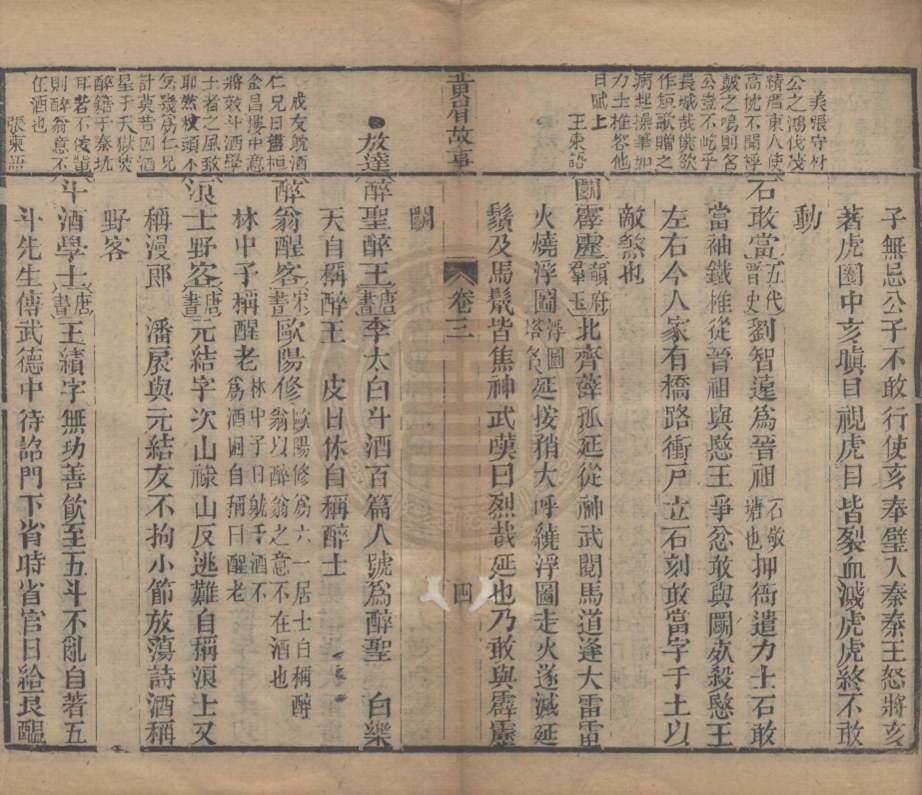 子無忌公子不敢行使亥奉璧入秦秦王怒將亥
著虎圈中亥瞋目視虎目皆裂血濺虎虎終不敢
動
石敢當（五代晉史）劉智遠為晉祖石敬瑭也押衙遣力士石敢
當袖鐵椎從晉祖與愍王爭忿敢與鬭歿殺愍王
左右今人家有橋路衝戸立石刻敢當字于土以
敵煞也
鬭霹靂（韻府羣玉）北齊薛孤延從神武閱馬道逢大雷雷
火燒浮圖浮圖塔名延按矟大呼繞浮圖走火遂滅延
鬚及馬鬃皆焦神武嘆曰烈哉延也乃敢與霹靂
鬭
美張守材
公之鴻伐茂
精厝東人使
高枕不聞桴
鼓之鳴則名
公壹不屹乎
長城哉僕欲
作短歌贈之
病捏操筆如
力士椎客他
日賦上
王東語
黃眉故事
卷三
四
放達
醉聖醉王（唐書）李太白斗酒百篇人號為醉聖　白樂
天自稱醉王　皮日休自稱醉士
醉翁醒客（宋書）歐陽修歐陽修為六一居士自稱醉翁以醉翁之意不在酒也
林中予稱醒老林中予日飲千酒不為酒困自稱曰醒老
浪士野客（唐書）元結字次山祿山反逃難自稱浪士又
稱漫郎　潘㞡與元結友不拘小節放蕩詩酒稱
野客
斗酒學士（唐書）王績字無功善飲至五斗不亂自著五
斗先生傳武德中待詔門下省時省官日給良醞
戍友耽酒
仁兄日晝桓
金昌樓中意
將效斗酒學
士者之風敢
耶然枕頭不
無幾為仁兄
計莫若囚酒
星于天獄焚
醉籍于秦坑
耳若不俊冀
則醉翁意不
在酒也
張東語